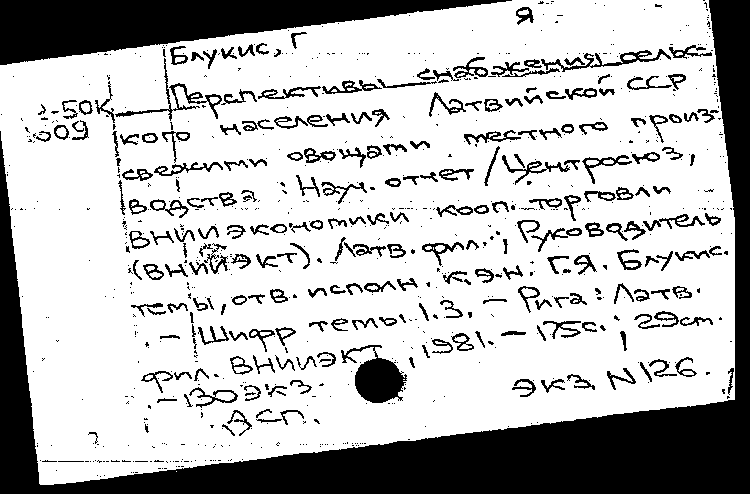 Блукис, Г Я
Перспективы снабжения сельс-
кого населения Латвийской ССР
свежими овощами местного произ-
водства : Науч. отчет / Центросоюз,
ВНИИ экономики кооп. торговли
(ВНИИЭКТ). Латв. фил.; Руководитель
темы, отв. исполн. к.э.н. Г.Я. Блукис.
. — Шифр темы 1.3. — Рига : Латв.
фил. ВНИИЭКТ, 1981. — 175с. ; 29см.
. — 130 экз.
Экз. N 126.